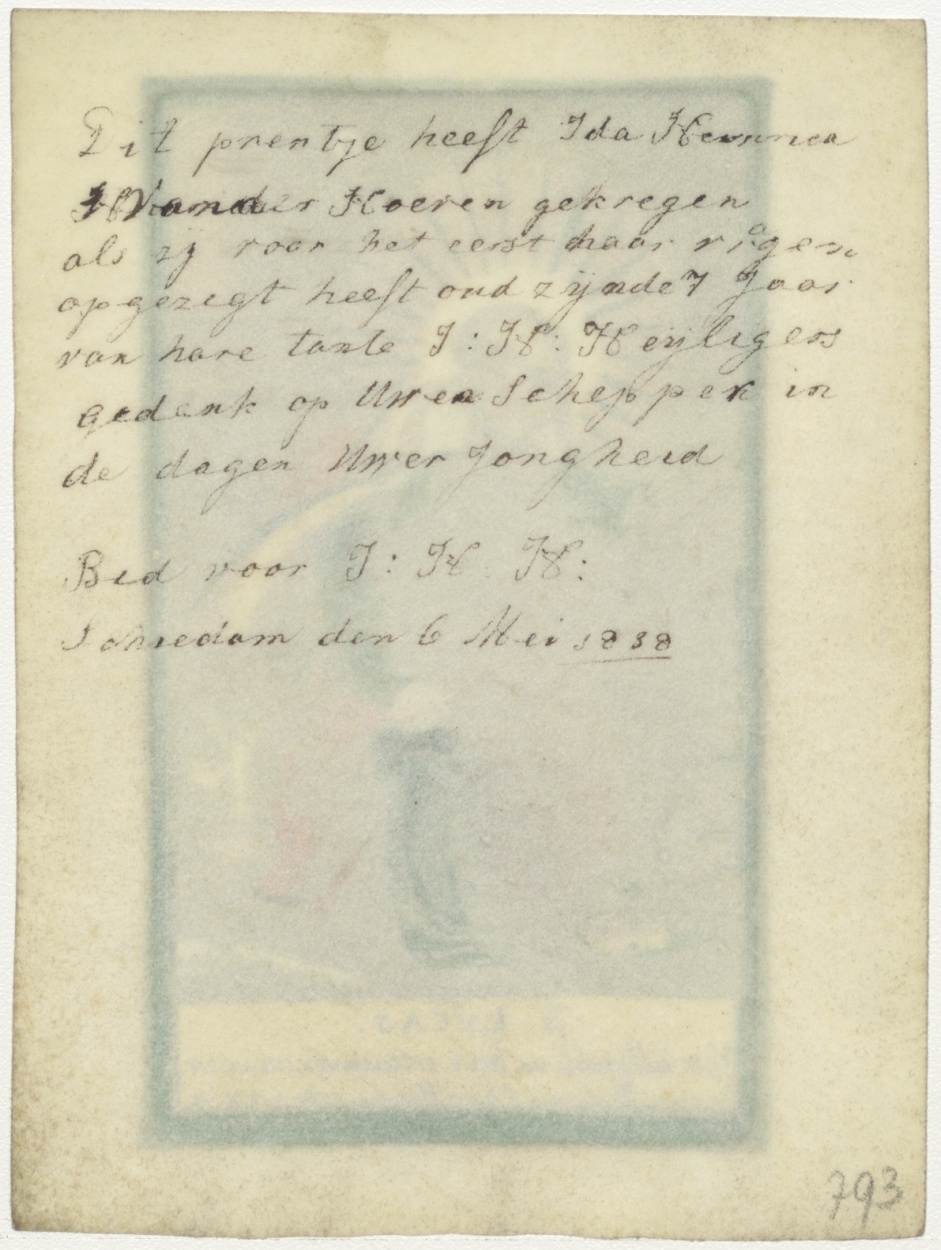 Dit prentje heeft Ida Henrica
Van der Hoeven gekregen
als zy voor het eerst haar vragen
opgezegt heeft oud zijnde 7 Jaar
van hare tante J: H: Heijligers
gedenk op Uwen Schepper in
de dagen Uwer Jongheid
Bid voor J: H H:
Schiedam den 6 Mei 1838
S LVCAS
793